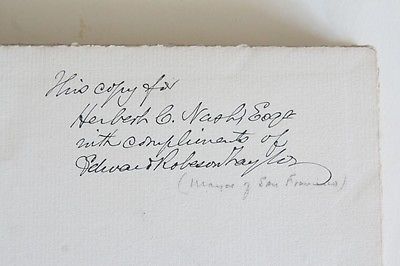 This copy for
Herbert C. Nash, Esqr
with compliments of
Edward Robeson Taylor
(Mayor of San Francisco)